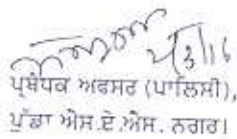 ਪ੍ਰਬੰਧਕ ਅਫਸਰ (ਪਾਲਿਸੀ),
ਪੁੱਡਾ ਐਸ.ਏ.ਐਸ. ਨਗਰ।